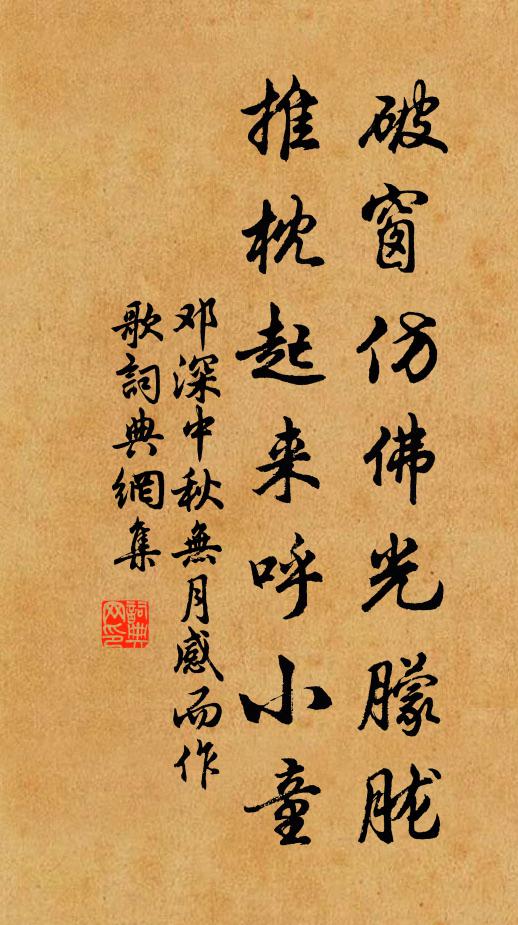 破窗仿佛光朦胧
推枕起来呼小童
邓深中秋無月感而作
歌詞典網集
詞典网印